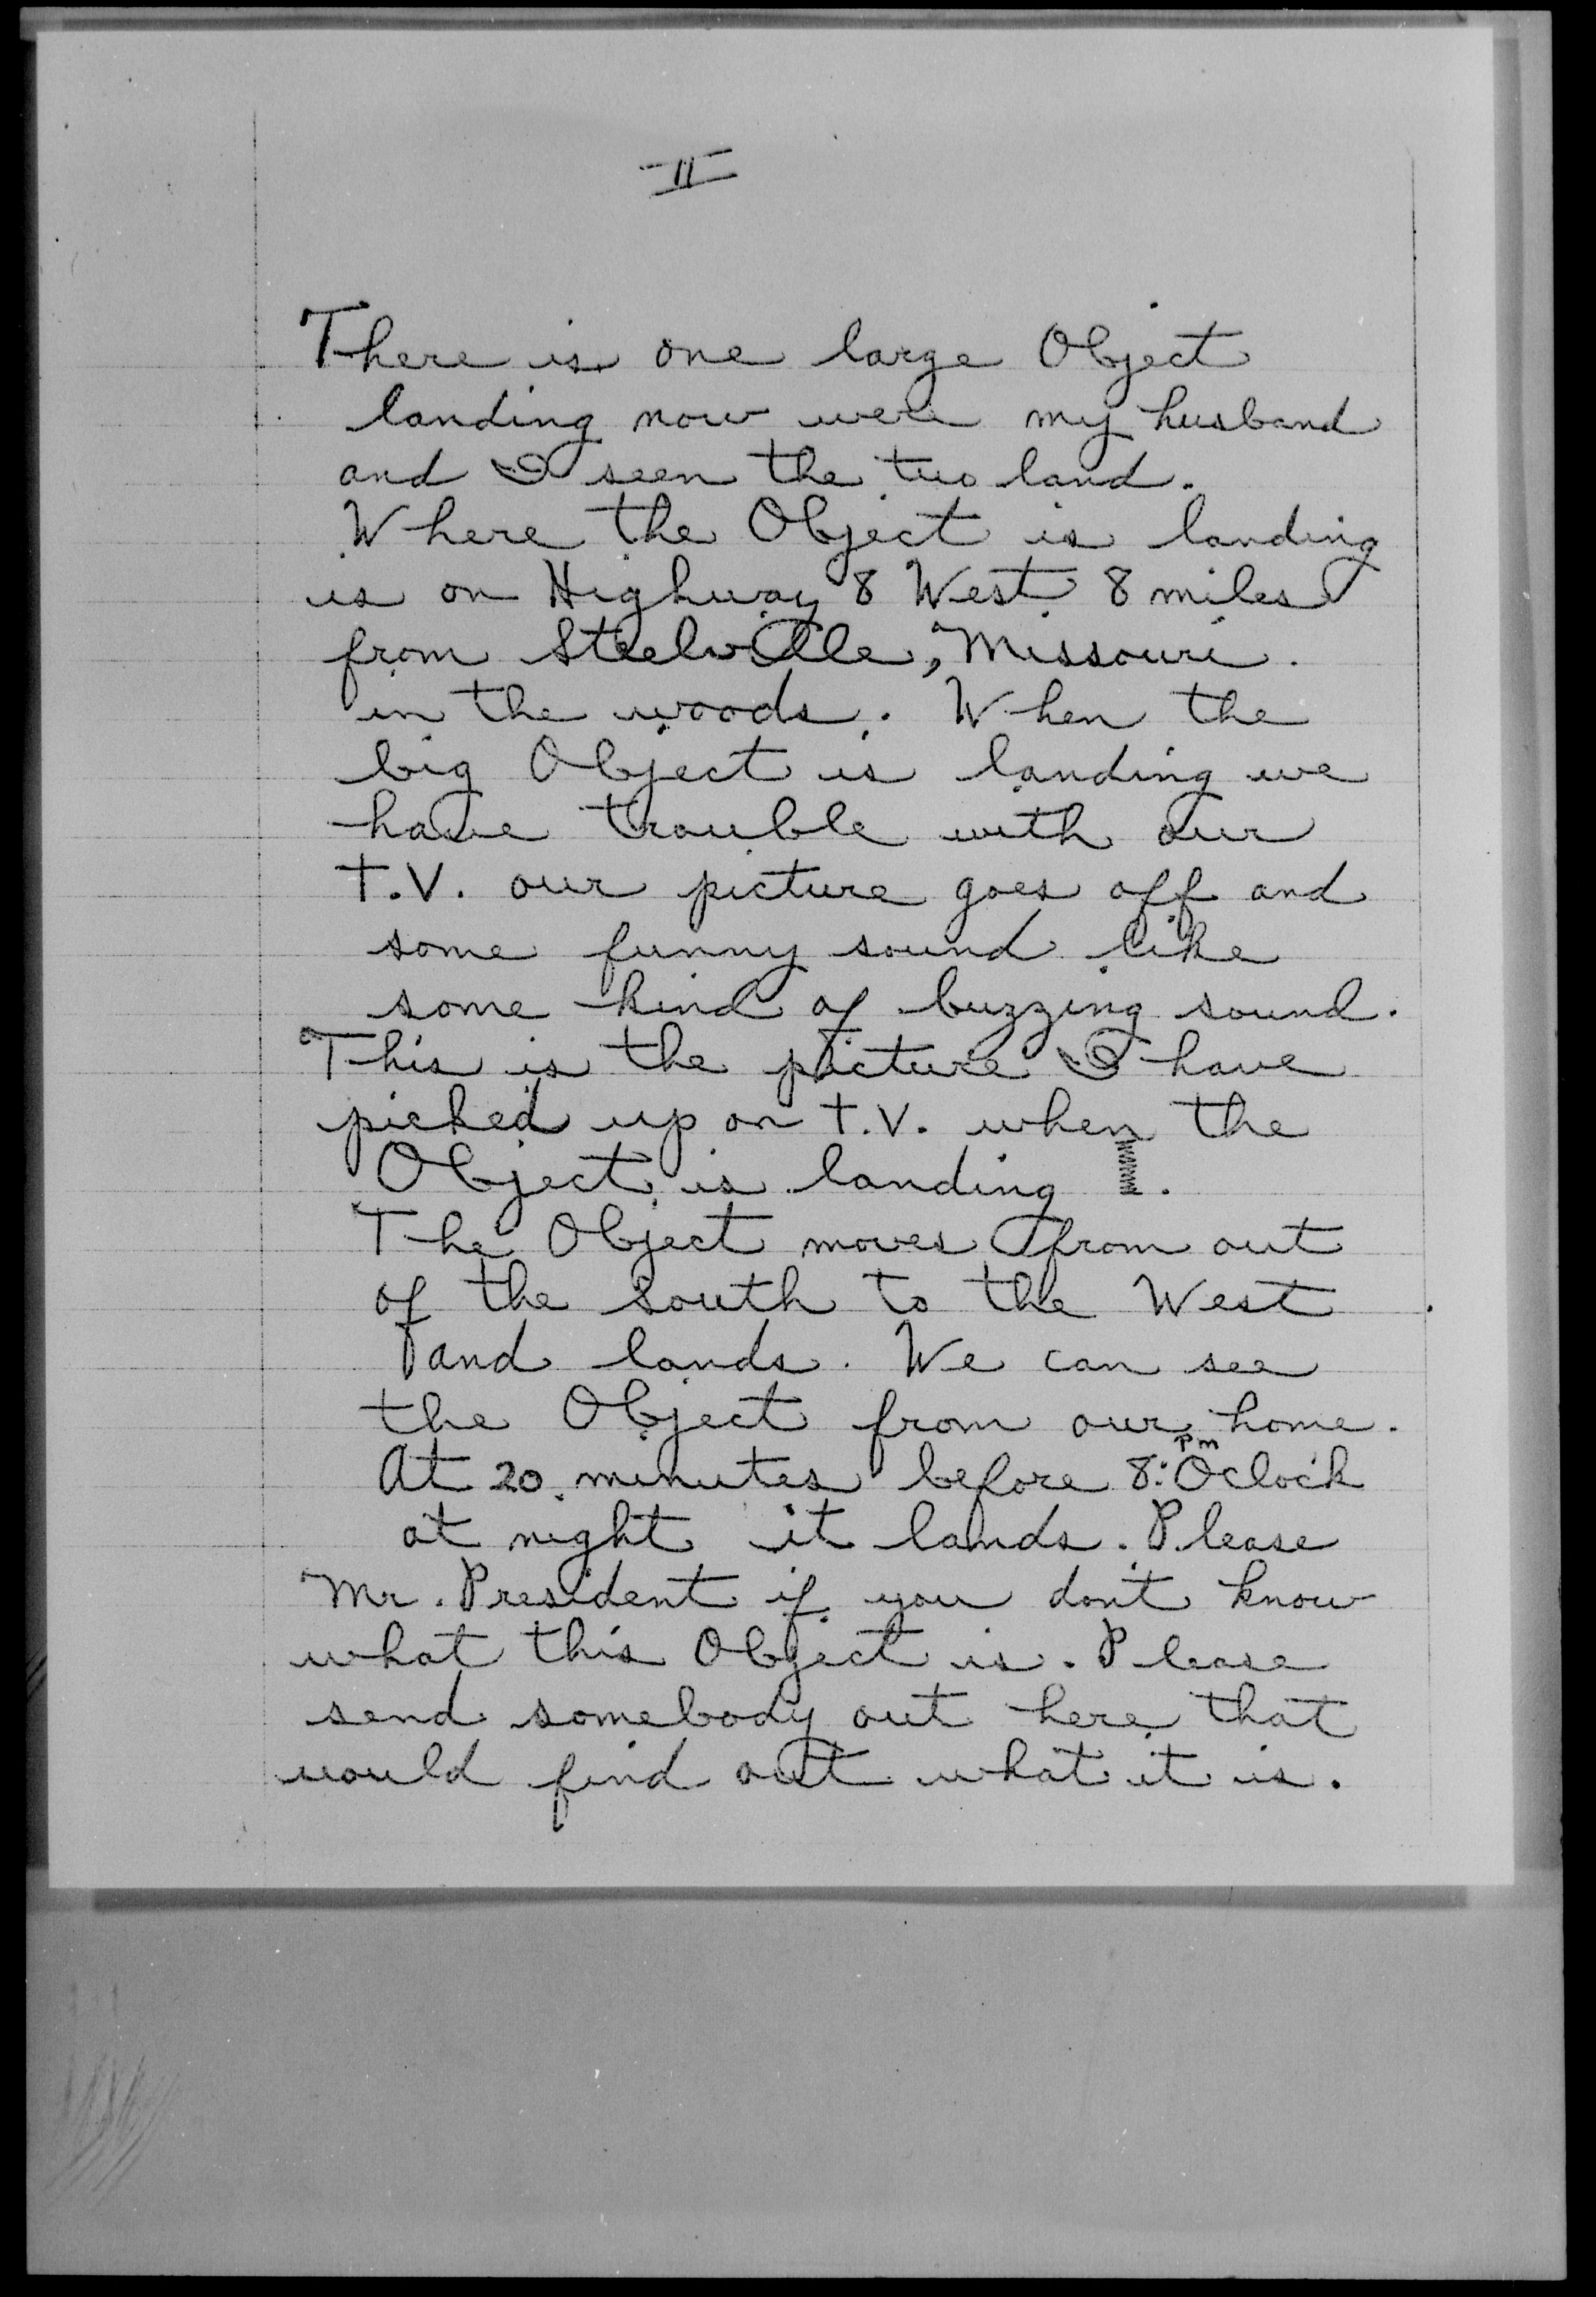 II
There is one large Object
landing now were my husband
and I seen the two land.
Where the Object is landing
is on Highway 8 West 8 miles
from Steelville, Missouri.
in the woods. When the
big Object is landing we
have trouble with our
T.V. our picture goes off and
some funny sound like
some kind of buzzing sound.
This is the picture I have
picked up on T.V. when the
Object is landing.
The Object moves from out
of the South to the West
and lands. We can see
the Object from our home.
At 20 minutes before 8: PM Oclock
at night it lands. Please
Mr. President if you dont know
what this Object is. Please
send somebody out here that
would find out what it is.